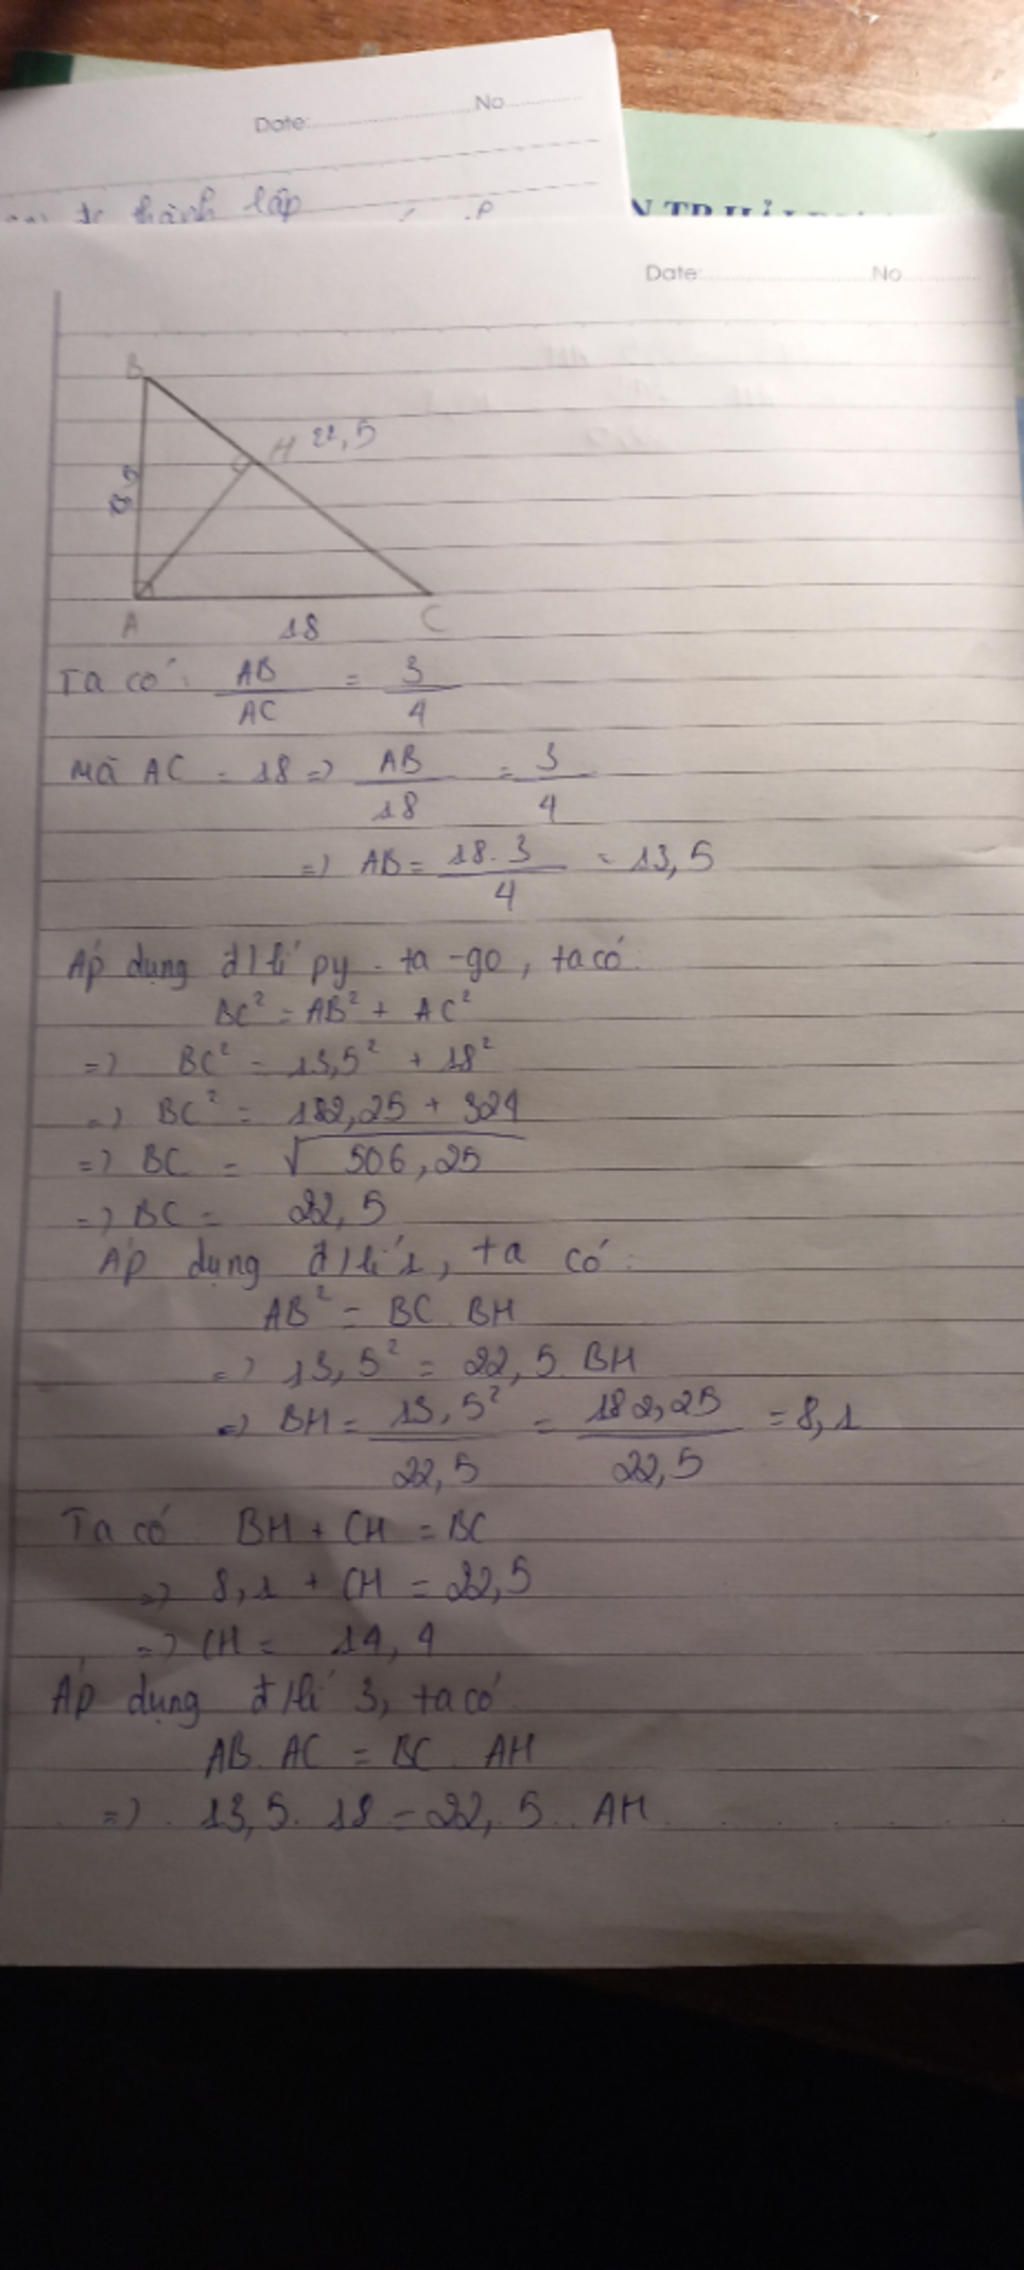 Date: No
thành lập
Date: No
B
H 22,5
A 18 C
Ta có: AB/AC = 3/4
Mà AC = 18 => AB/18 = 3/4
=> AB = 18.3/4 = 13,5
Áp dụng đ/lí py-ta-go, ta có:
BC² = AB² + AC²
=> BC² = 13,5² + 18²
=> BC² = 182,25 + 324
=> BC = √506,25
=> BC = 22,5
Áp dụng đ/lí 1, ta có:
AB² = BC.BH
=> 13,5² = 22,5.BH
=> BH = 13,5²/22,5 = 182,25/22,5 = 8,1
Ta có BH + CH = BC
=> 8,1 + CH = 22,5
=> CH = 14,4
Áp dụng đ/lí 3, ta có
AB.AC = BC.AH
=> 13,5.18 = 22,5.AH